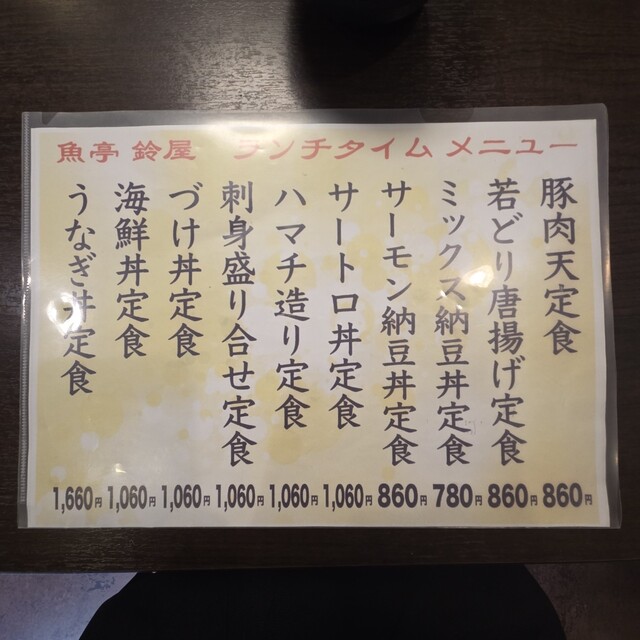 魚亭 鈴屋 ランチタイム メニュー
豚肉天定食 860円
若どり唐揚げ定食 860円
ミックス納豆丼定食 780円
サーモン納豆丼定食 860円
サートロ丼定食 1,060円
ハマチ造り定食 1,060円
刺身盛り合せ定食 1,060円
づけ丼定食 1,060円
海鮮丼定食 1,060円
うなぎ丼定食 1,660円